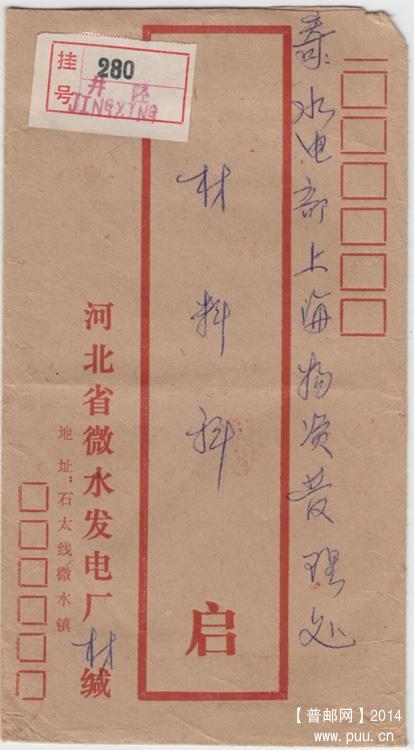 挂号
280
井陉
JINGXING
寄:水电部上海物资管理处
材料科
启
河北省微水发电厂材缄
地址:石太线微水镇
【普邮网】2014
www.puu.cn